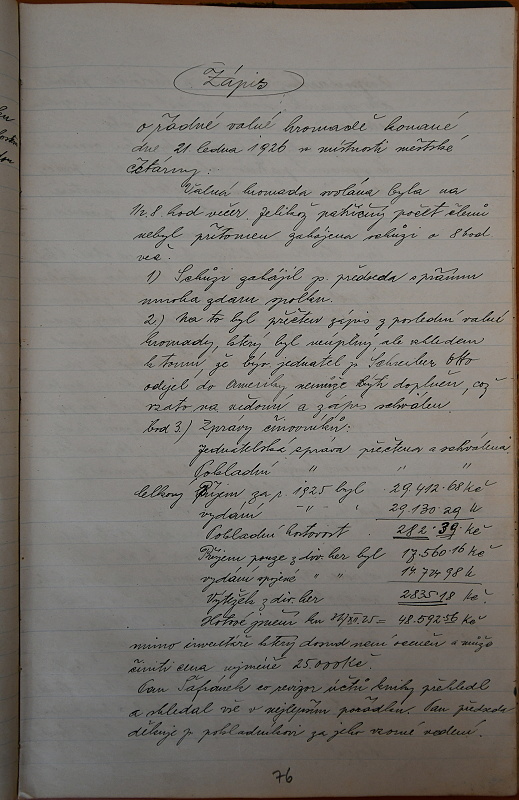 Zápis
o řádné valné hromadě konané
dne 21 ledna 1926 v místnosti městské
čítárny:
Valná hromada svolána byla na
½ 8. hod večer. Jelikož patřičný počet členů
nebyl přítomen zahájena schůzi o 8 hod
več.
1) Schůzi zahájil p. předseda s přáním
mnoha zdaru spolku.
2.) Na to byl přečten zápis z poslední valné
hromady, který byl neúplný, ale vzhledem
k tomu, že býv. jednatel p. Schreiber Otto
odjel do Ameriky nemůže býti doplněn, což
vzato na vědomí a zápis schválen.
bod 3.) Zprávy činovníků:
Jednatelská zpráva přečtena a schválena
Pokladní " " "
Celkový Příjem za r. 1925 byl 29.412.68 Kč
vydání " " " 29.130.29 "
Pokladní hotovost . 282.39 Kč
Příjem pouze z div. her byl 17.560.16 Kč
vydání spojené " " 14.724.98 "
Výtěžek z div. her 2835.18 Kč.
Hotové jmění ku 31/XII.25 = 48.592.56 Kč
mimo inventáře který dosud není oceněn a může
činiti cena nejméně 25.000 Kč.
Pan Šafránek co revizor účtů knihy přehledl
a shledal vše v nejlepším pořádku. Pan předseda
děkuje p. pokladníkovi za jeho vzorné vedení.
76